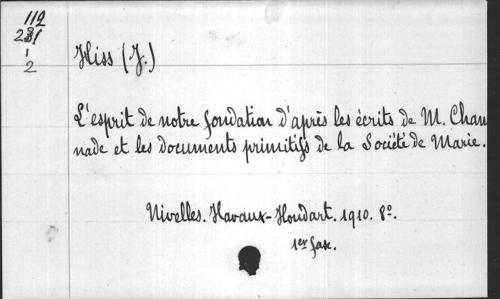 112
231
1
2
Hiss (J.)
L'esprit de notre fondation d'après les écrits de M. Cham
nade et les documents primitifs de la Société de Marie.
Nivelles. Havaux-Houdart. 1910. 8º.
1er fasc.